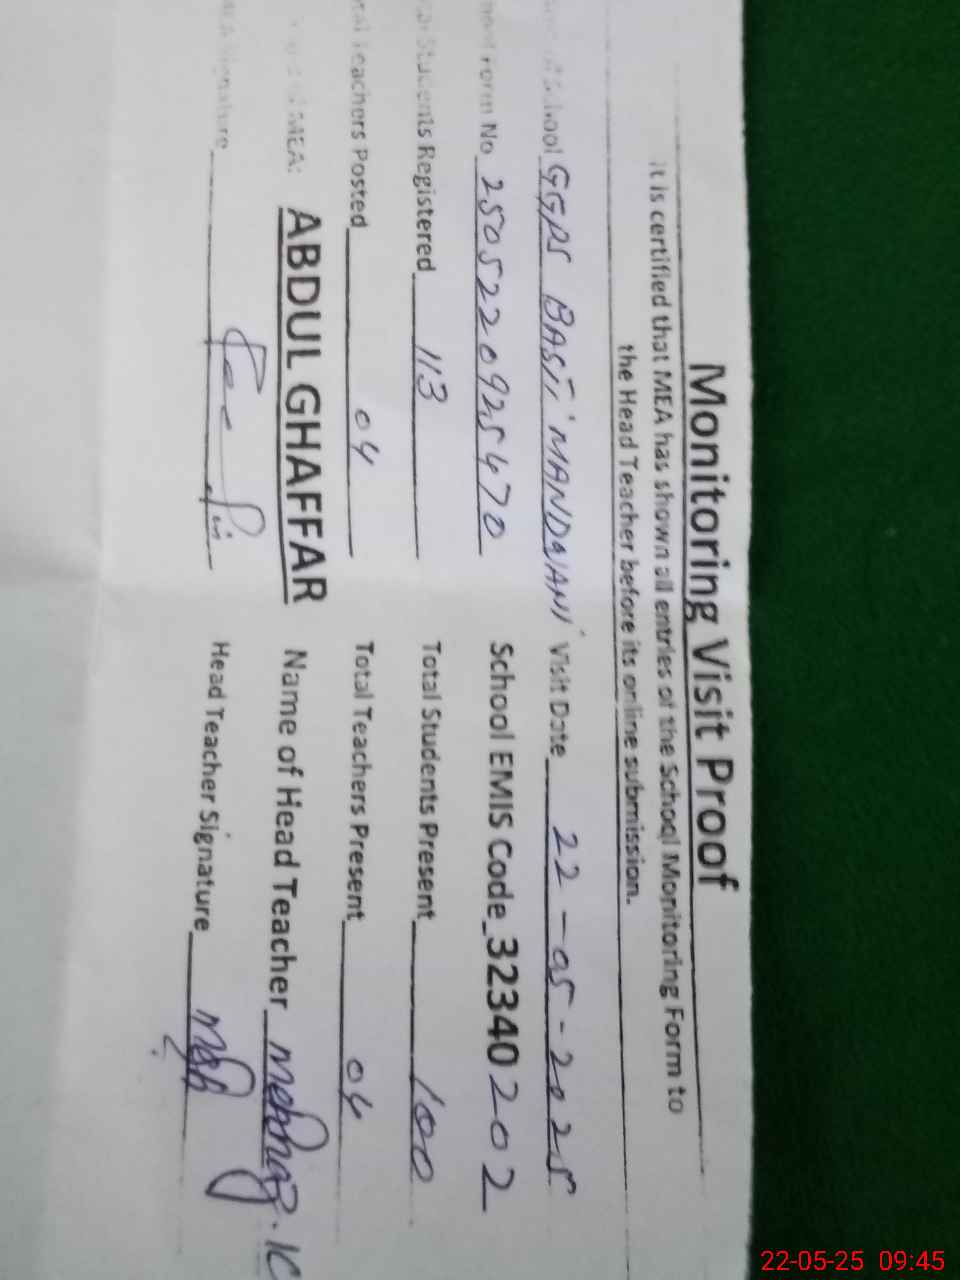 Monitoring Visit Proof
it is certified that MEA has shown all entries of the School Monitoring Form to
the Head Teacher before its online submission.
School GGPS BASTI MANDWANI Visit Date 22-05-2025
Form No 2505220925470 School EMIS Code 32340202
Students Registered 113 Total Students Present 100
Teachers Posted 04 Total Teachers Present 04
MEA: ABDUL GHAFFAR Name of Head Teacher
Signature Head Teacher Signature
22-05-25 09:45